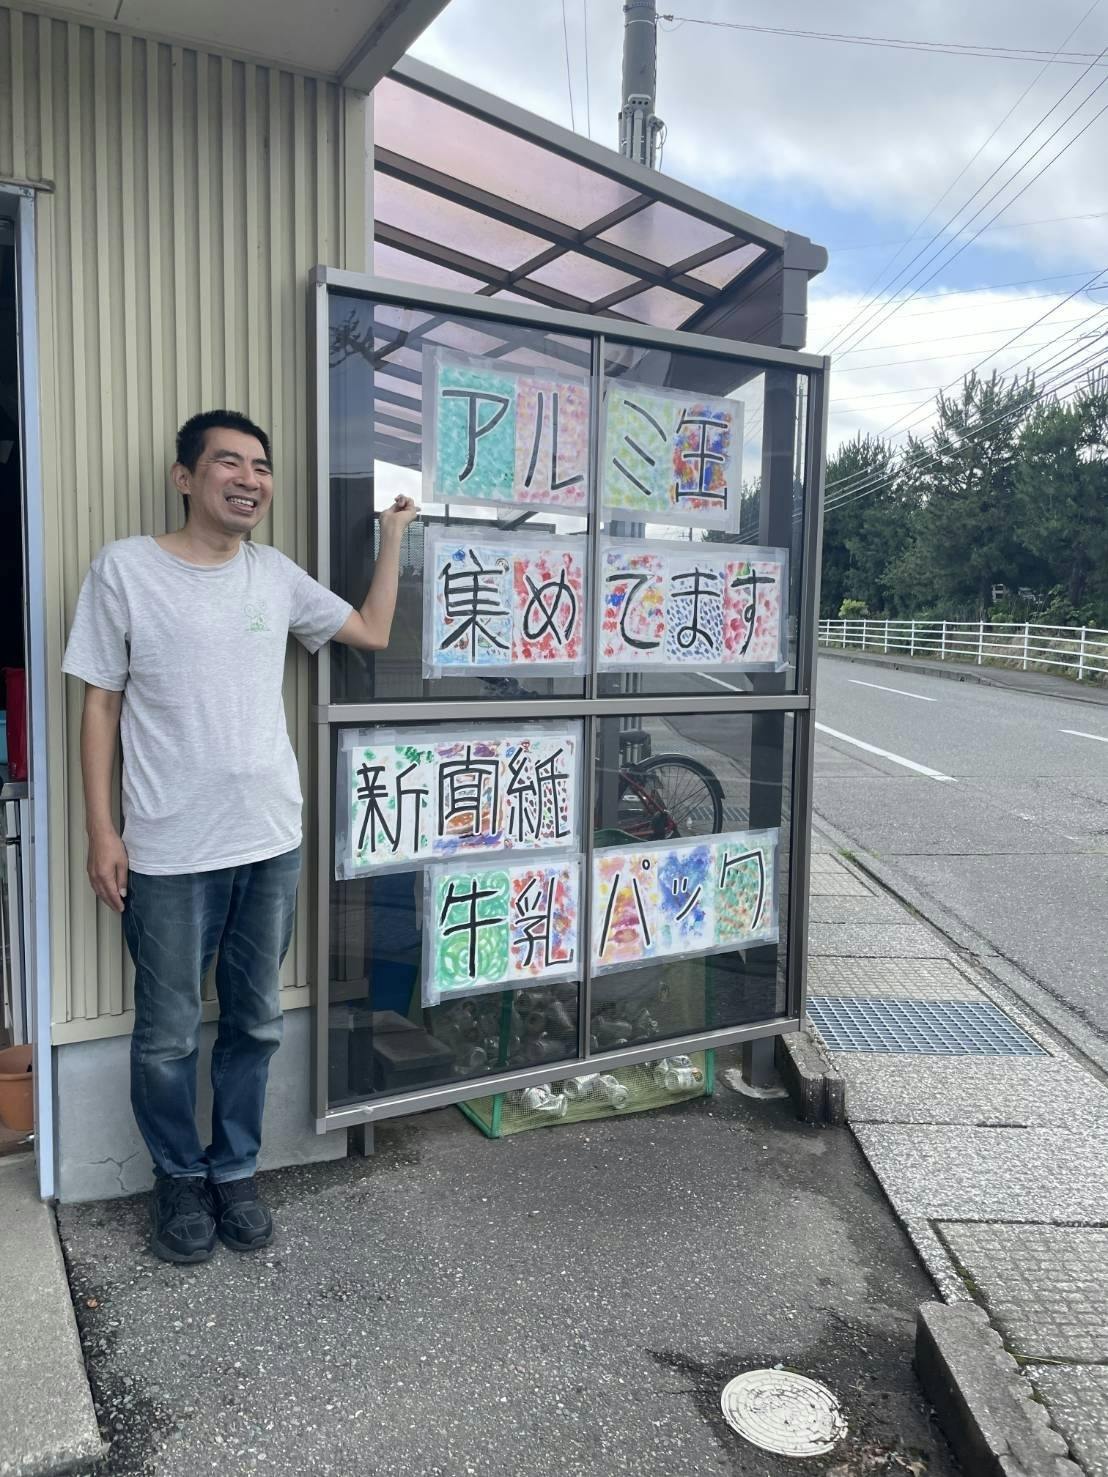 アルミ缶
集めてます
新聞紙
牛乳パック